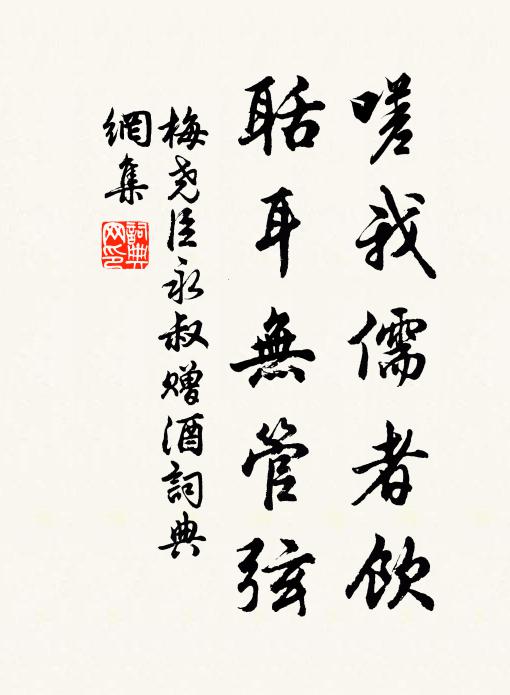 嗟我儒者飲
聒耳無管弦
梅尧臣永叔赠酒詞典
網集
詞典
网印